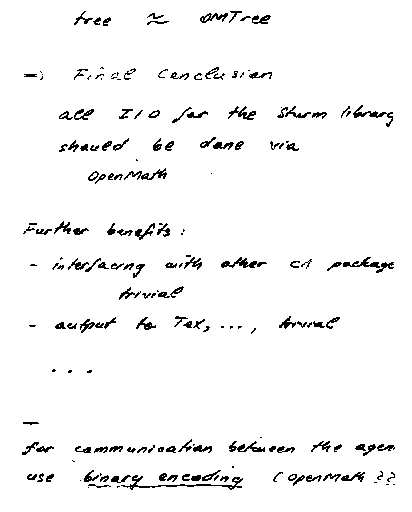 tree ≈ OMTree
=> Final Conclusion
all I/O for the Sturm library
should be done via
OpenMath
Further benefits:
- interfacing with other CA package
trivial
- output to Tex, ..., trivial
...
—
for communication between the agen
use binary encoding (OpenMath ??